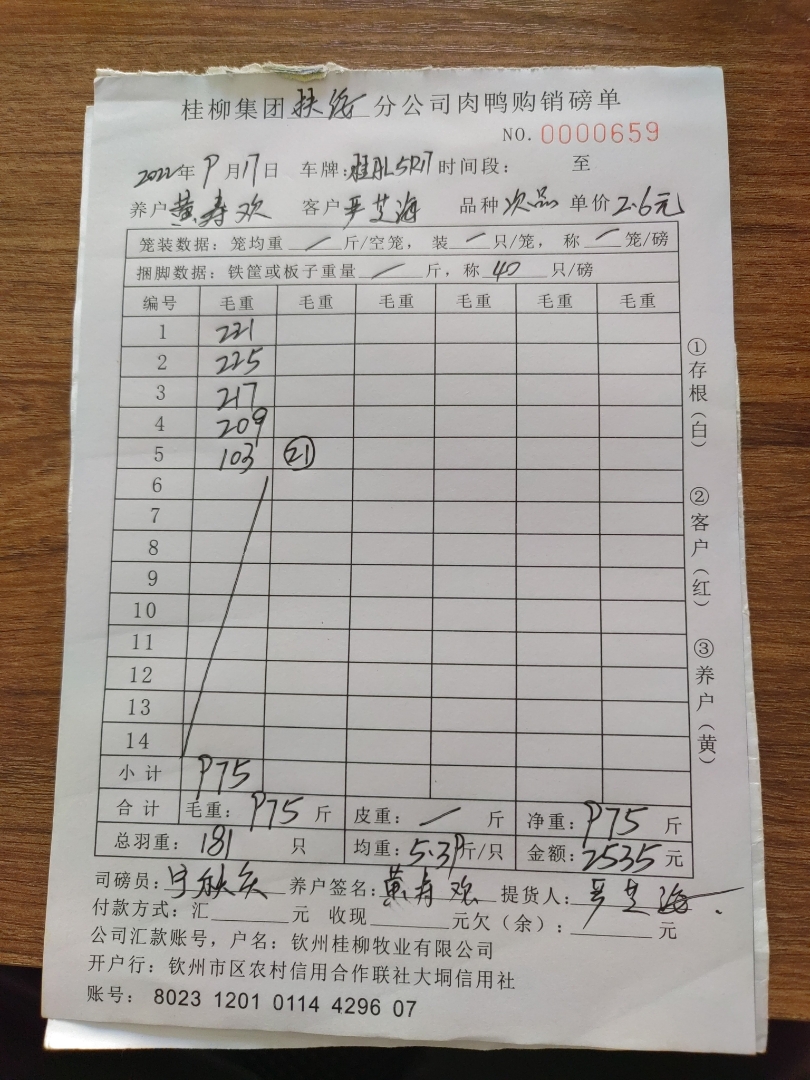 桂柳集团扶绥分公司肉鸭购销磅单
NO. 0000659
2022年9月17日 车牌: 时间段: 至
养户黄寿欢 客户严芝海 品种次品 单价2.6元
笼装数据: 笼均重 / 斤/空笼, 装 / 只/笼, 称 / 笼/磅
捆脚数据: 铁筐或板子重量 / 斤, 称 40 只/磅
编号 毛重 毛重 毛重 毛重 毛重 毛重
1 221
2 225
3 217
4 209
5 103 ㉑
6
7
8
9
10
11
12
13
14
小计 975
合计 毛重: 975 斤 皮重: / 斤 净重: 975 斤
总羽重: 181 只 均重: 5.39斤/只 金额: 2535 元
司磅员: 养户签名: 黄寿欢 提货人: 严芝海
付款方式: 汇 元 收现 元欠(余): 元
公司汇款账号, 户名: 钦州桂柳牧业有限公司
开户行: 钦州市区农村信用合作联社大垌信用社
账号: 8023 1201 0114 4296 07
①存根(白)
②客户(红)
③养户(黄)